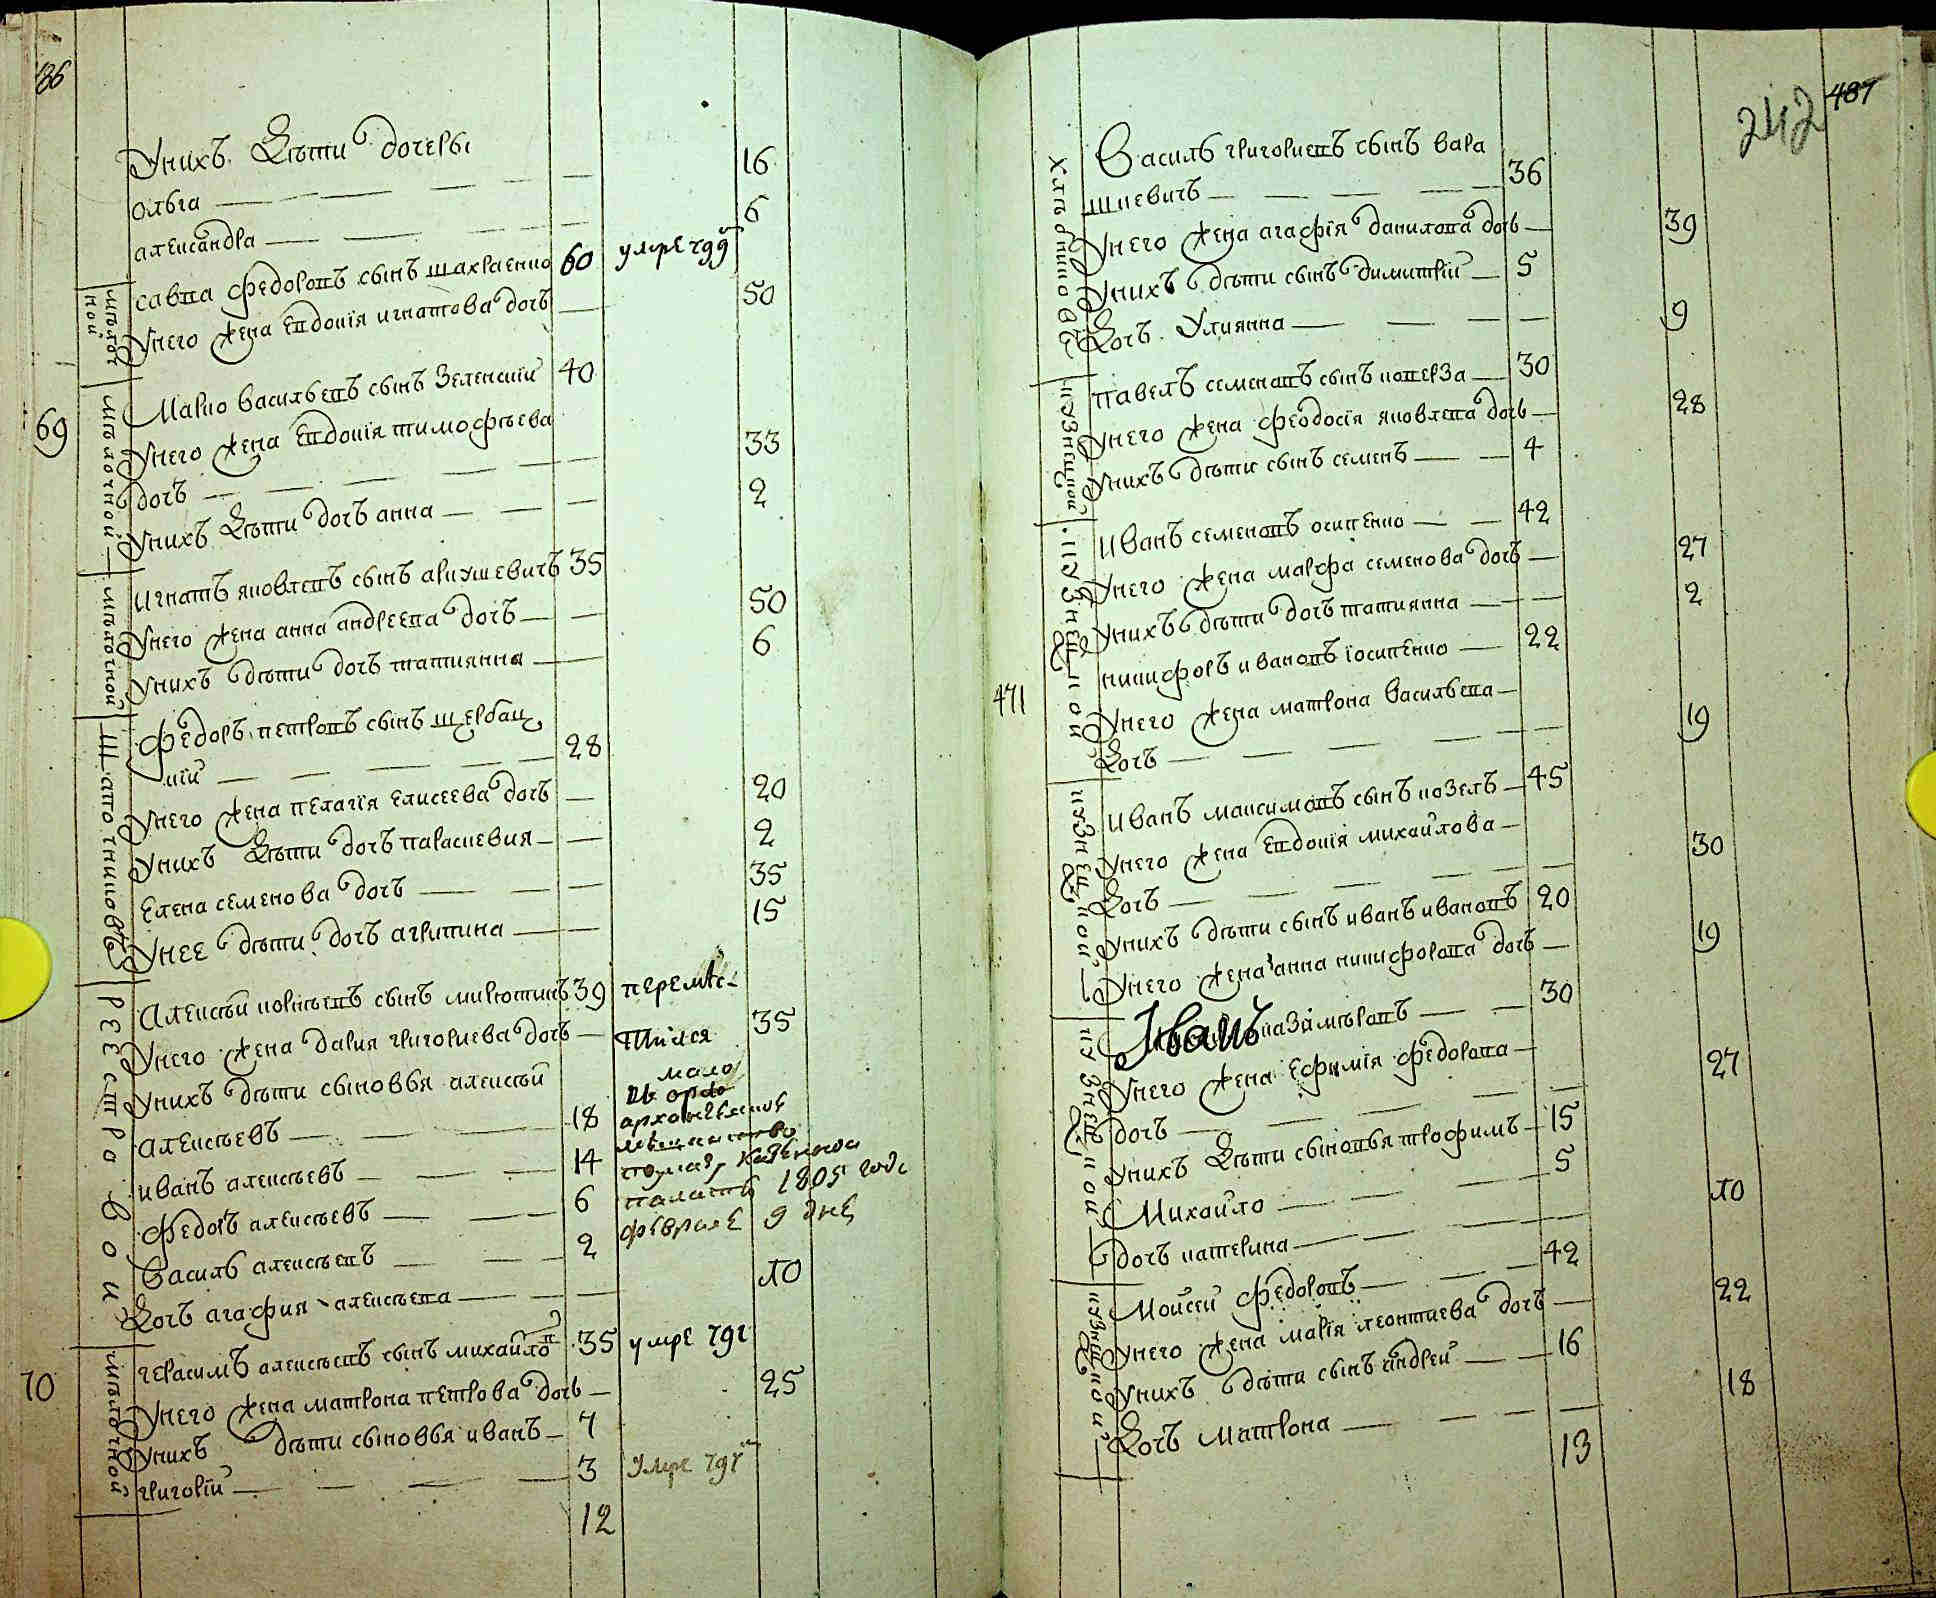 486
Унихъ Дѣти дочеры
олъга — — — — 16
александра — — — — 6
савва федоровъ сынъ шахраенко 60 умре 799
мѣлоч
ной
Унего жена евдокія игнатова дочъ — 50
69
мѣлочной
Марко васильевъ сынъ Зеленскій 40
Унего жена Евдокія тимофѣева
дочъ — — — 33
Унихъ Дѣти дочъ анна — — — 2
мѣлочной
игнатъ яковлевъ сынъ аркушевичъ 35
Унего жена анна андреева дочъ — — 50
Унихъ дѣти дочъ татиянна — 6
Шапошниковъ
федоръ петровъ сынъ щербац
кій — — — 28
Унего жена пелагія елисеева дочъ — 20
Унихъ Дѣти дочъ параскевия — — 2
Елена семенова дочъ — — — 35
Унее дѣти дочъ агрипина — — 15
реестровой
Алексѣй корнѣевъ сынъ милютинъ 39 перемѣс-
Унего жена дария григориева дочъ — тился 35
Унихъ дѣти сыновья алексѣй мало
алексѣевъ — — — 18 архангельское
мещанство
иванъ алексѣевъ — — — 14 казенной
федоръ алексѣевъ — — 6 палаты 1805 года
Василь алексѣевъ — — 2 февраля 9 дня
Дочъ агафия алексѣева — — — 10
70
мѣлочной
герасимъ алексѣевъ сынъ михайлов 35 умре 791
Унего жена матрона петрова дочь — 25
Унихъ дѣти сыновья иванъ — 7
григорій — — — — 3 Умре 797
12
242 487
хлѣбниковъ
Василь григориевъ сынъ вара
шкевичъ — — — 36
Унего жена агафія данилова дочь — 39
Унихъ дѣти сынъ димитрій — 5
Дочъ Улиянна — — — — 9
кузнецной
павелъ семеновъ сынъ коверза — 30
Унего жена феодосія яковлева дочь — 28
Унихъ дѣти сынъ семенъ — — 4
кузнецкой
Иванъ семеновъ осипенко — — 42
Унего жена марфа семенова дочъ — 27
Унихъ дѣти дочъ татиянна — — 2
471
никифоръ ивановъ іосипенко — 22
Унего жена матрона васильева —
Дочъ — — — — — 19
кузнецкой
Иванъ максимовъ сынъ козелъ — 45
Унего жена Евдокія михайлова —
Дочъ — — — — — 30
Унихъ дѣти сынъ иванъ ивановъ 20
Унего жена анна никифорова дочъ — 19
кузнецкой
Иванъ казимѣровъ — — 30
Унего жена Ефимія федорова —
дочъ — — — — 27
Унихъ Дѣти сыновья трофимъ — 15
Михайло — — — — 5
дочъ катерина — — — — 10
кузнецкой
Моисей федоровъ — — — 42
Унего жена марія леонтиева дочъ — 22
Унихъ дѣти сынъ андрей — — 16
Дочъ матрона — — — — 18
13